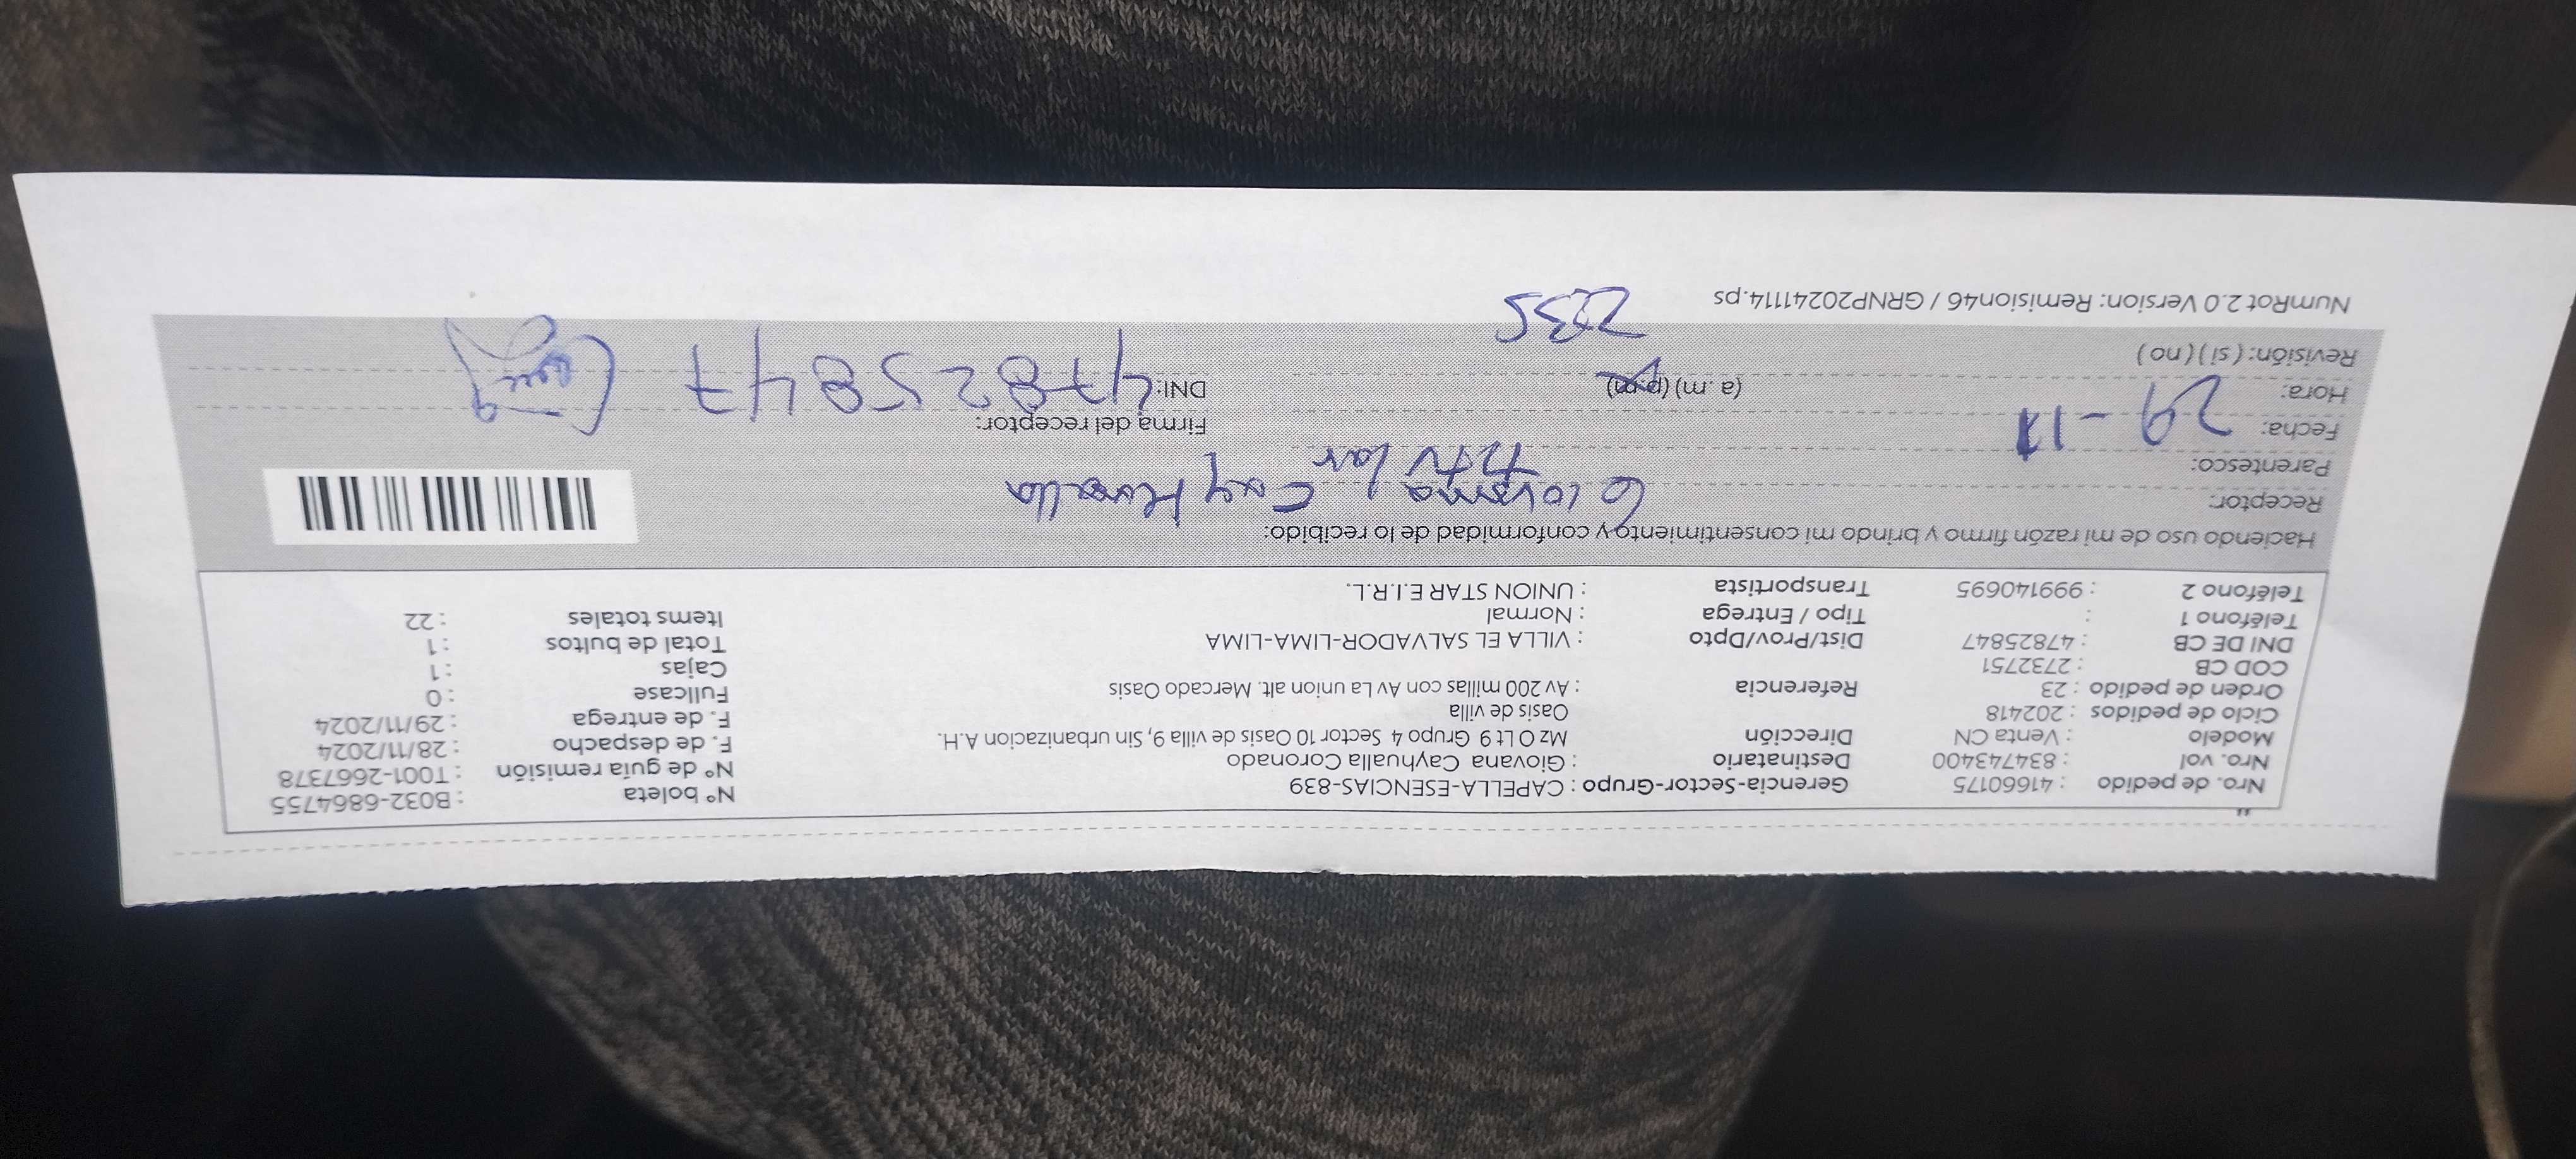 Nro. de pedido : 41660175 Gerencia-Sector-Grupo : CAPELLA-ESENCIAS-839 N° boleta : B032-6864755
Nro. vol : 834743400 Destinatario : Giovana Cayhualla Coronado N° de guia remisión : T001-2667378
Modelo : Venta CN Dirección Mz O Lt 9 Grupo 4 Sector 10 Oasis de villa 9, Sin urbanizacion A.H. F. de despacho : 28/11/2024
Ciclo de pedidos : 202418 Oasis de villa F. de entrega : 29/11/2024
Orden de pedido : 23 Referencia : Av 200 millas con Av La union alt. Mercado Oasis Fullcase : 0
COD CB : 2732751 Cajas : 1
DNI DE CB : 47825847 Dist/Prov/Dpto : VILLA EL SALVADOR-LIMA-LIMA Total de bultos : 1
Teléfono 1 : Tipo / Entrega : Normal Items totales : 22
Teléfono 2 : 999140695 Transportista : UNION STAR E.I.R.L.
Haciendo uso de mi razón firmo y brindo mi consentimiento y conformidad de lo recibido:
Receptor: Giovana Cayhualla
Parentesco: titular
Fecha: 29-11 Firma del receptor:
Hora: (a. m) (p.m) DNI: 47825847
Revisión: ( si ) ( no )
NumRot 2.0 Version: Remision46 / GRNP20241114.ps